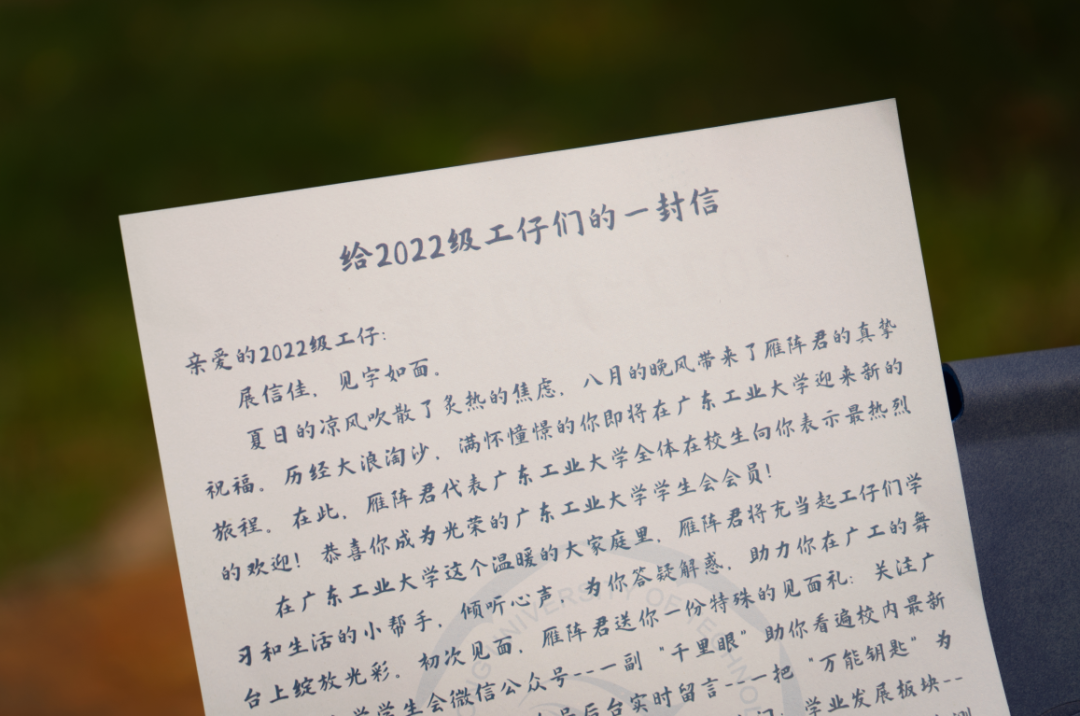 给2022级工仔们的一封信
亲爱的2022级工仔：
展信佳，见字如面。
夏日的凉风吹散了炙热的焦虑，八月的晚风带来了雁阵君的真挚
祝福。历经大浪淘沙，满怀憧憬的你即将在广东工业大学迎来新的
旅程。在此，雁阵君代表广东工业大学全体在校生向你表示最热烈
的欢迎！恭喜你成为光荣的广东工业大学学生会会员！
在广东工业大学这个温暖的大家庭里，雁阵君将充当起工仔们学
习和生活的小帮手，倾听心声，为你答疑解惑，助力你在广工的舞
台上绽放光彩。初次见面，雁阵君送你一份特殊的见面礼：关注广
学学生会微信公众号---一副“千里眼”助你看遍校内最新
号后台实时留言---一把“万能钥匙”为
学业发展板块--
UNIVERSITY OF TECHNO